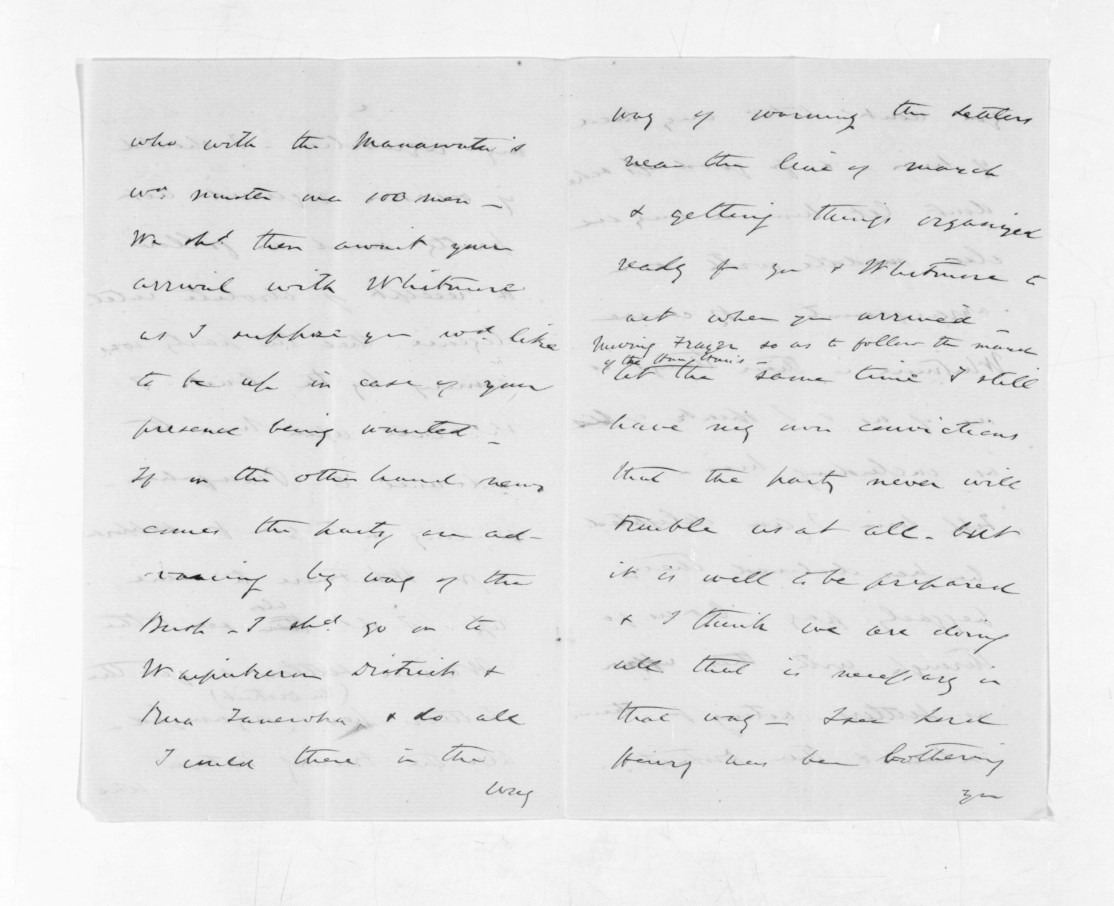 who with the Manawatu's
wd. muster over 100 men –
We shd. then await your
arrival with Whitmore
as I suppose you wod. like
to be up in case of your
presence being wanted –
If on the other hand news
comes the party are ad-
-vancing by way of the
Bush – I shd. go on to
Waipukurau District &
Rua Taniwha, & do all
I could there in the
way
way of warning the settlers
near the line of march
& getting things organized
ready for you & Whitmore to
act when you arrived –
moving Frazer so as to follow the march
of the Hau Hau's –
At the same time I still
have my own convictions
that the party never will
trouble us at all. but
it is well to be prepared
& I think we are doing
all that is necessary in
that way – I see Lord
Henry has been bothering
you